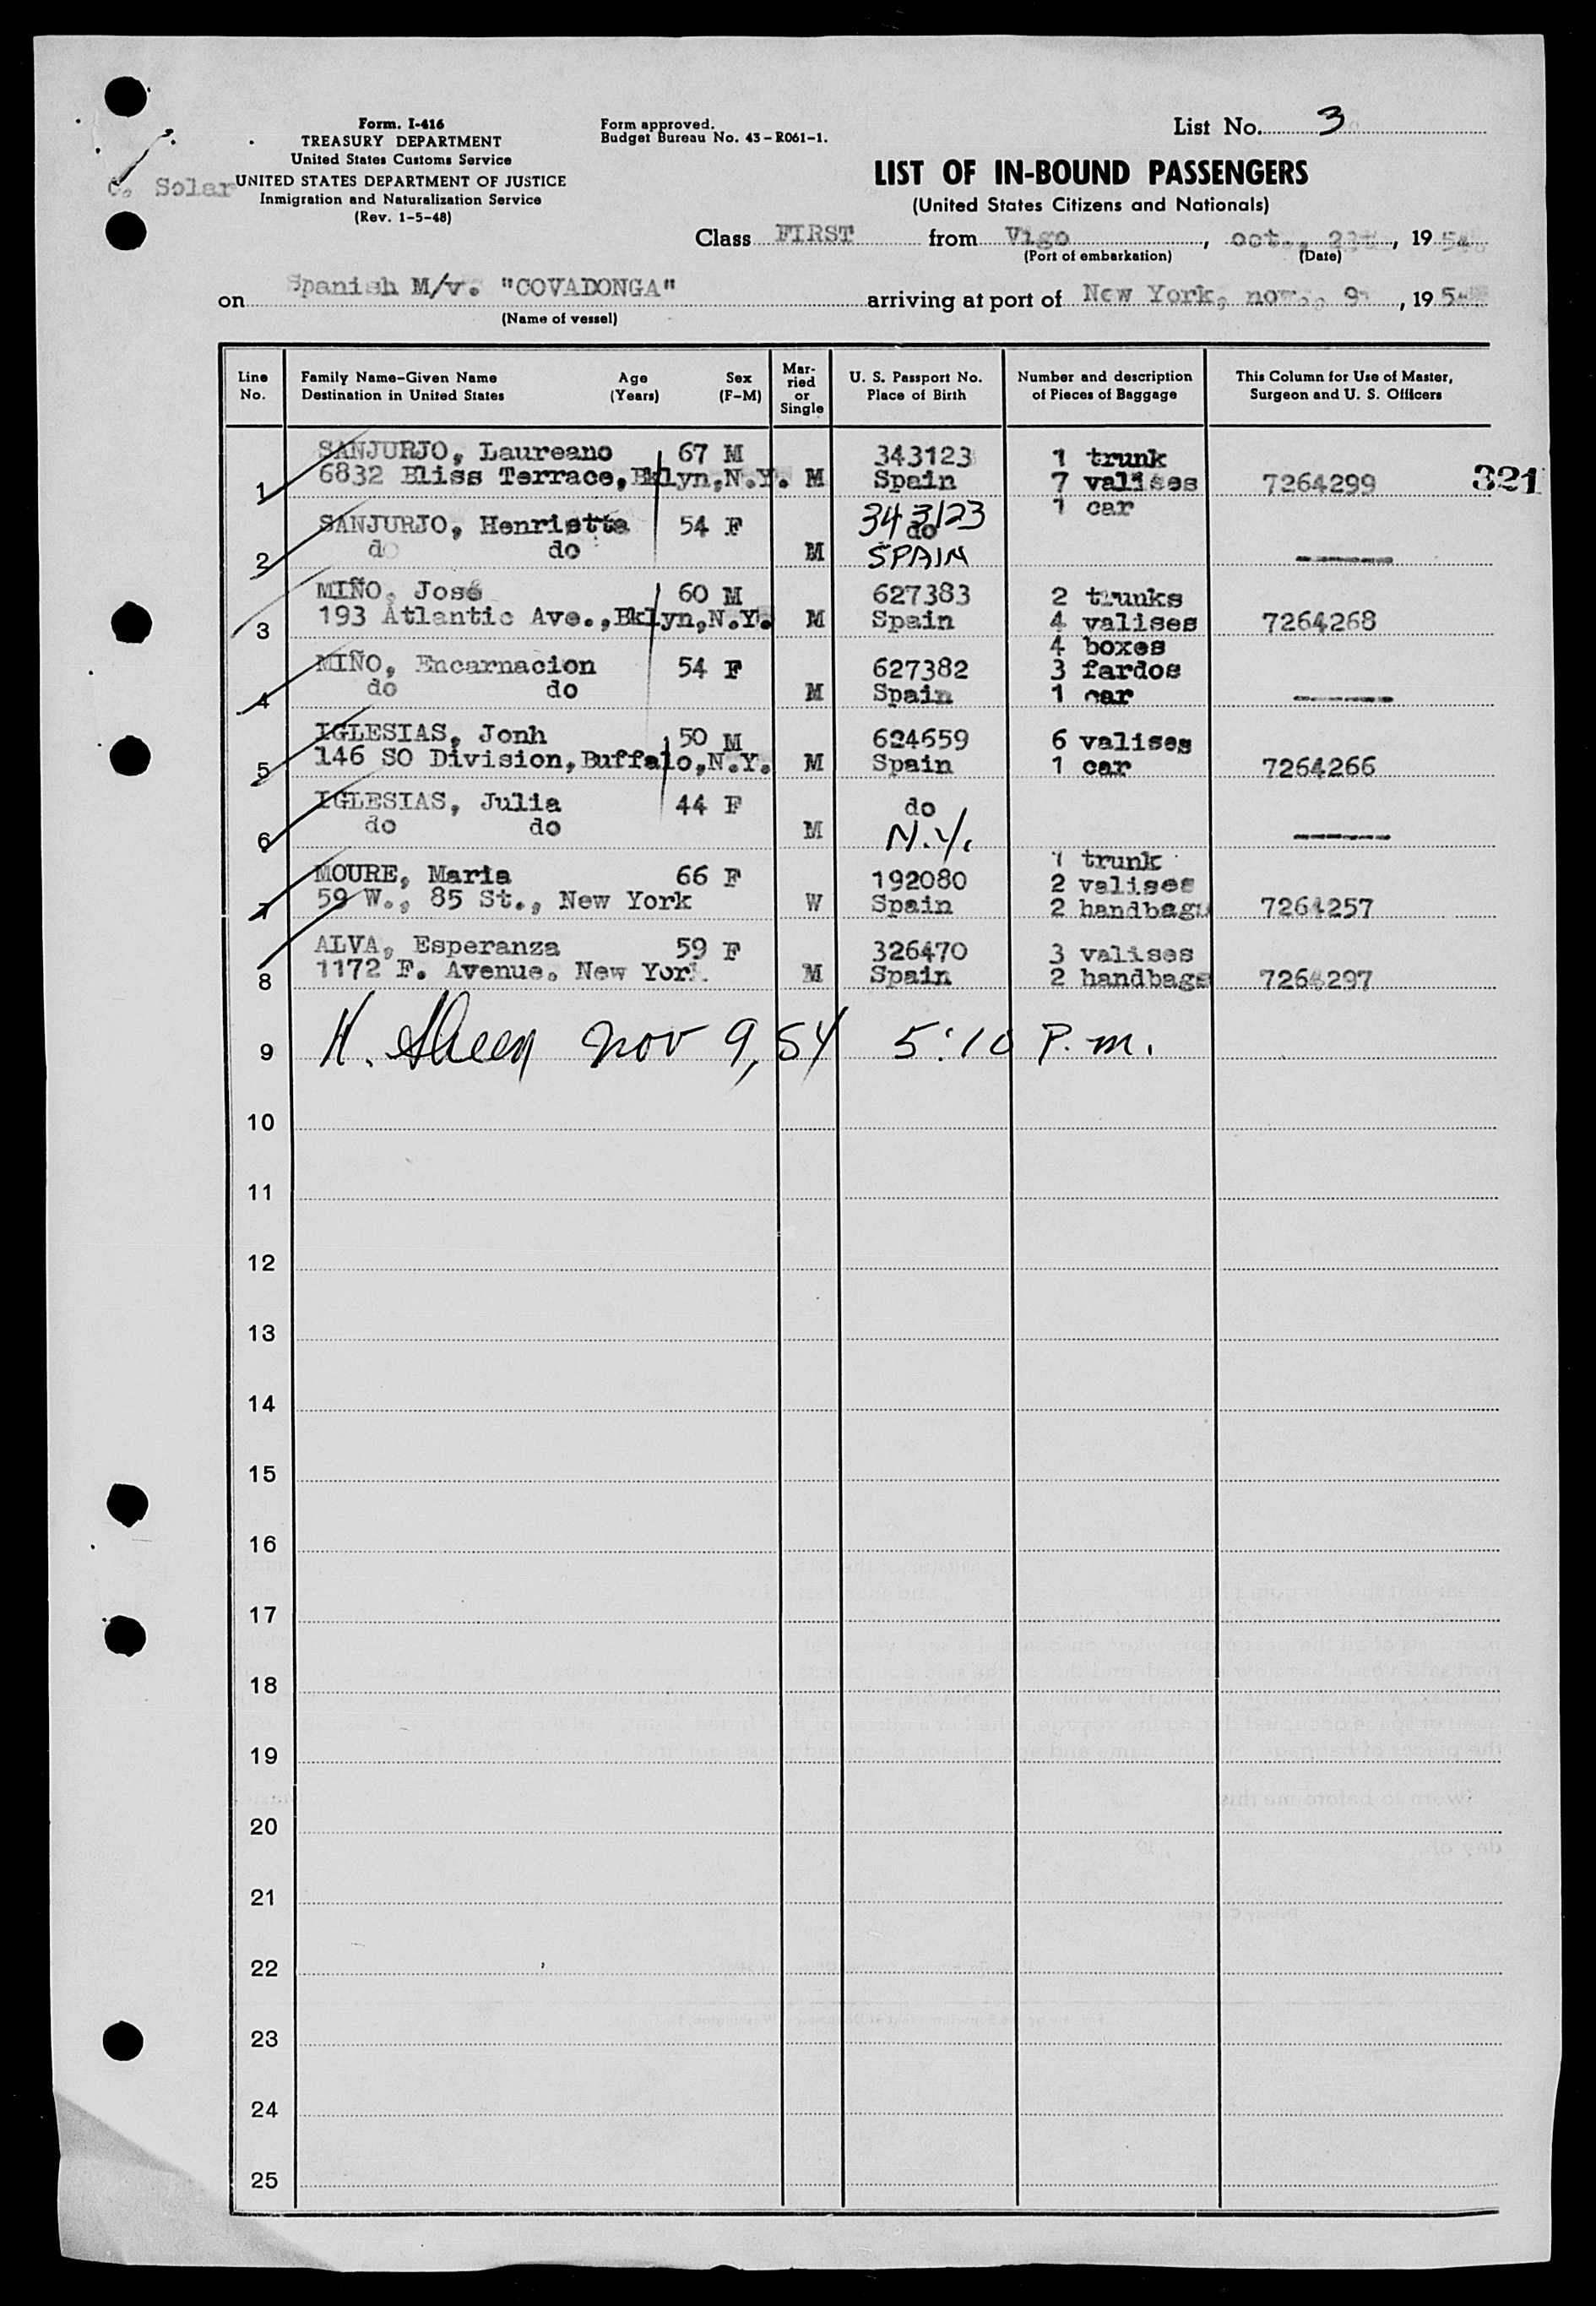 Form. I-416
TREASURY DEPARTMENT
United States Customs Service
UNITED STATES DEPARTMENT OF JUSTICE
Inmigration and Naturalization Service
(Rev. 1-5-48)
c. Solar
Form approved.
Budget Bureau No. 43-R061-1.
List No. 3
LIST OF IN-BOUND PASSENGERS
(United States Citizens and Nationals)
Class FIRST from Vigo, oct., 19 54
(Port of embarkation) (Date)
on Spanish M/v. "COVADONGA" arriving at port of New York, nov., 9, 19 54
(Name of vessel)
Line No. Family Name-Given Name Destination in United States Age (Years) Sex (F-M) Married or Single U. S. Passport No. Place of Birth Number and description of Pieces of Baggage This Column for Use of Master, Surgeon and U. S. Officers
SANJURJO, Laureano 67 M 343123 1 trunk
1 6832 Bliss Terrace, Bklyn, N.Y. M Spain 7 valises 7264299 321
1 car
SANJURJO, Henrietta 54 F 343123 do
2 do do M SPAIN
MIÑO, José 60 M 627383 2 trunks
3 193 Atlantic Ave., Bklyn, N.Y. M Spain 4 valises 7264268
4 boxes
MIÑO, Encarnacion 54 F 627382 3 fardos
4 do do M Spain 1 car
IGLESIAS, Jonh 50 M 624659 6 valises
5 146 SO Division, Buffalo, N.Y. M Spain 1 car 7264266
IGLESIAS, Julia 44 F do
6 do do M N.Y.
1 trunk
MOURE, Maria 66 F 192080 2 valises
7 59 W., 85 St., New York W Spain 2 handbags 7264257
ALVA, Esperanza 59 F 326470 3 valises
8 1172 F. Avenue. New York M Spain 2 handbags 7264297
9 H. Sheen nov 9, 54 5:10 P.m.
10
11
12
13
14
15
16
17
18
19
20
21
22
23
24
25